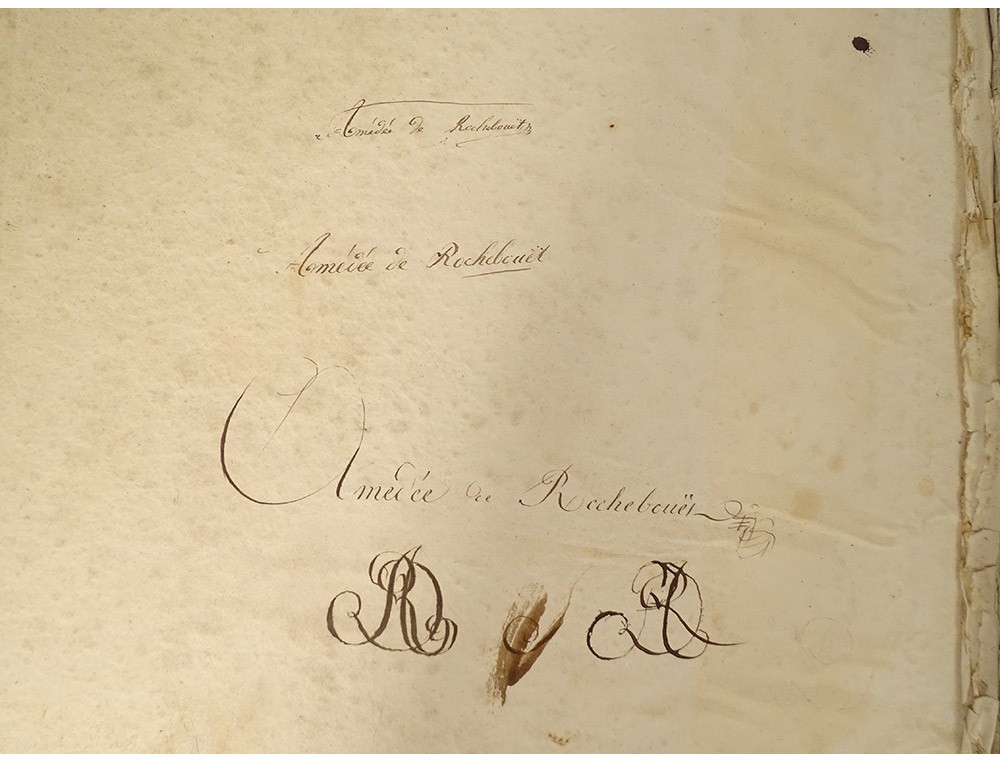 Amédée de Rochebouët
Amédée de Rochebouët
Amédée de Rochebouët